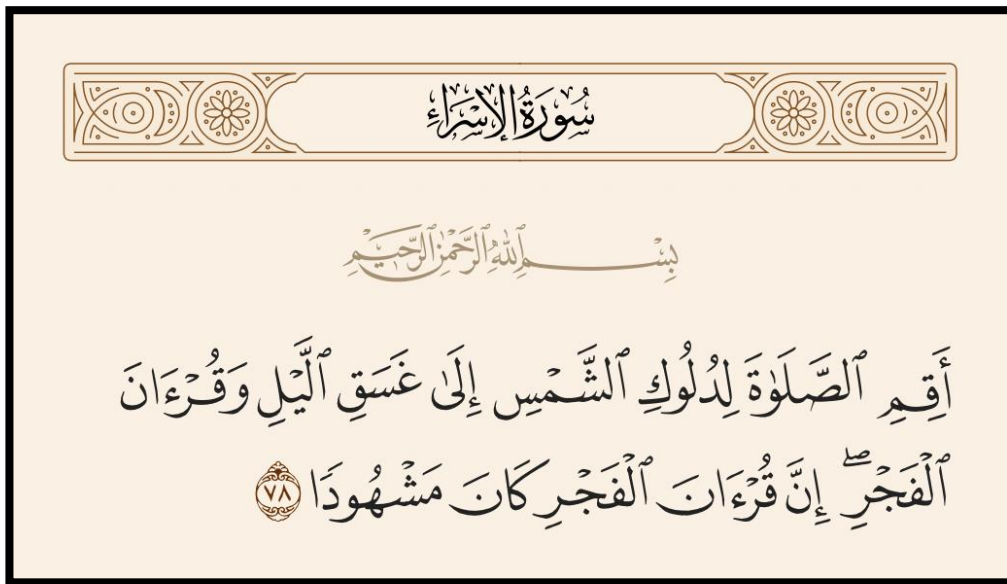 سُورَةُ الإِسْرَاءِ
بِسْمِ ٱللَّهِ ٱلرَّحْمَٰنِ ٱلرَّحِيمِ
أَقِمِ ٱلصَّلَوٰةَ لِدُلُوكِ ٱلشَّمْسِ إِلَىٰ غَسَقِ ٱلَّيْلِ وَقُرْءَانَ
ٱلْفَجْرِ ۖ إِنَّ قُرْءَانَ ٱلْفَجْرِ كَانَ مَشْهُودًا ٧٨